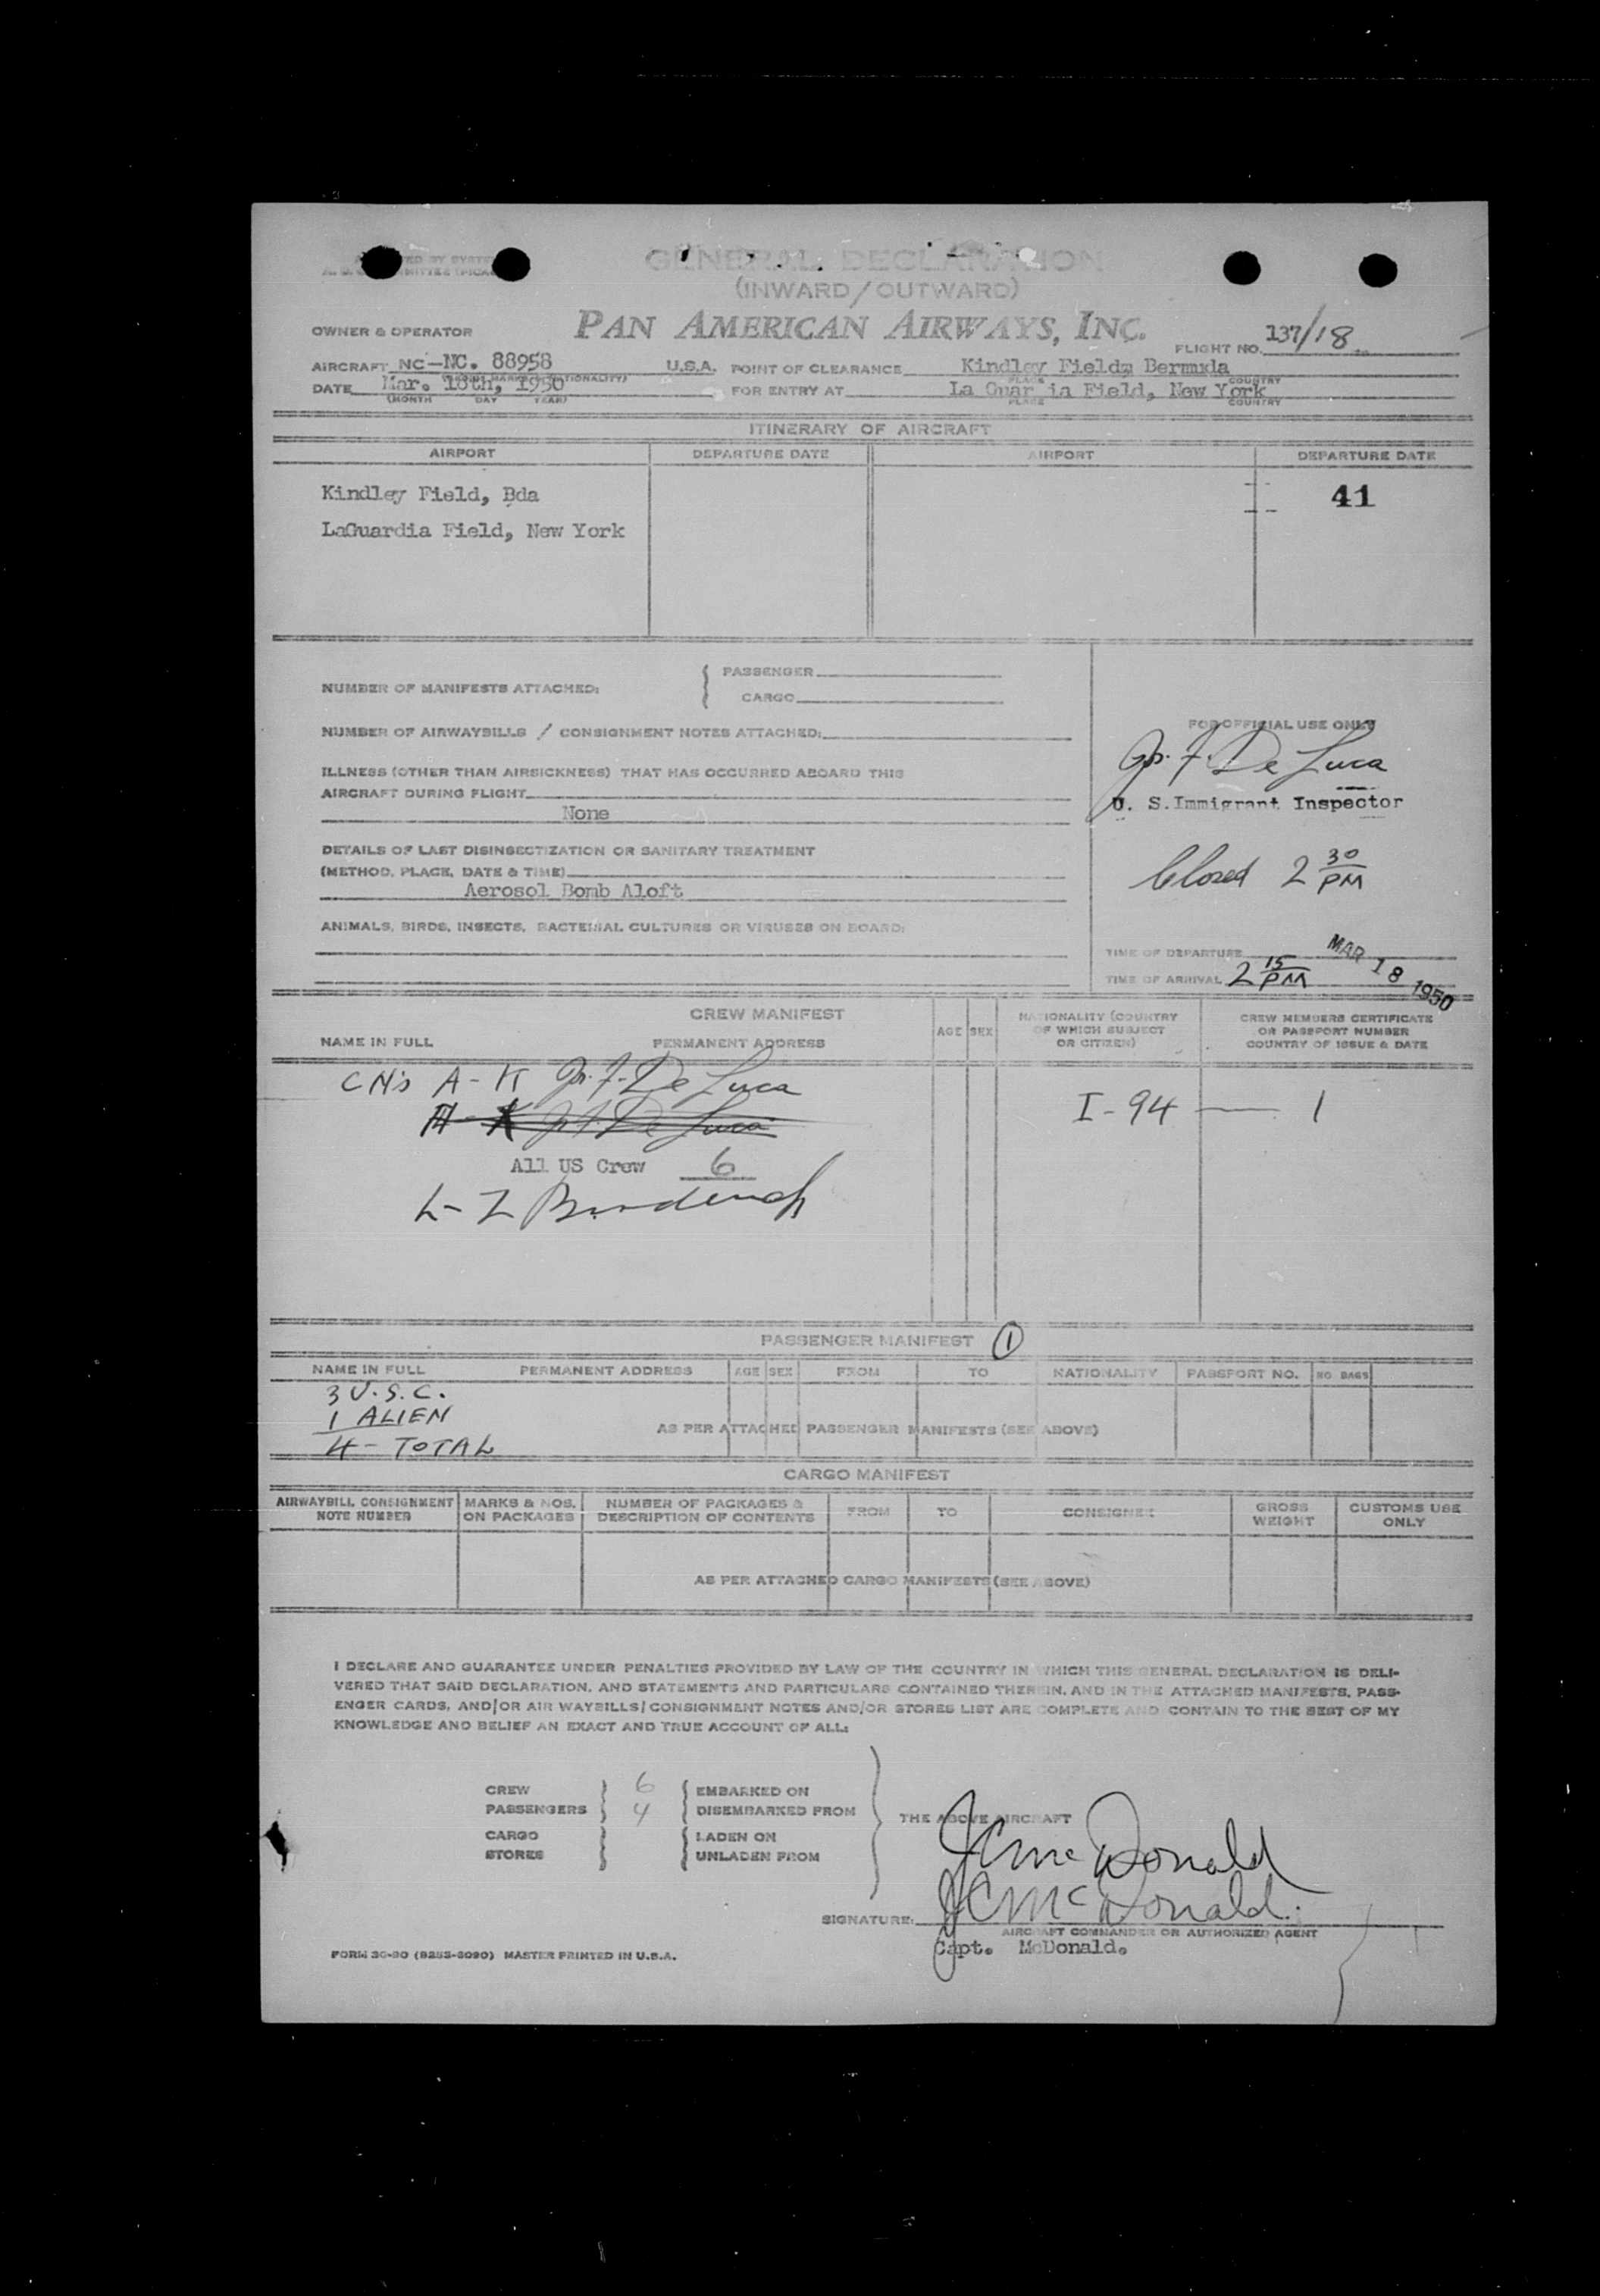 GENERAL DECLARATION
(INWARD/OUTWARD)
OWNER & OPERATOR PAN AMERICAN AIRWAYS, INC. FLIGHT NO. 137/18
AIRCRAFT NC-NC. 88958 U.S.A. POINT OF CLEARANCE Kindley Field, Bermuda
DATE Mar. 18th, 1950 FOR ENTRY AT La Guar ia Field, New York
(MONTH DAY YEAR) PLACE COUNTRY
ITINERARY OF AIRCRAFT
AIRPORT DEPARTURE DATE AIRPORT DEPARTURE DATE
Kindley Field, Bda 41
LaGuardia Field, New York
NUMBER OF MANIFESTS ATTACHED: { PASSENGER
CARGO
NUMBER OF AIRWAYBILLS / CONSIGNMENT NOTES ATTACHED:
ILLNESS (OTHER THAN AIRSICKNESS) THAT HAS OCCURRED ABOARD THIS
AIRCRAFT DURING FLIGHT
None
DETAILS OF LAST DISINSECTIZATION OR SANITARY TREATMENT
(METHOD, PLACE, DATE & TIME)
Aerosol Bomb Aloft
ANIMALS, BIRDS, INSECTS, BACTERIAL CULTURES OR VIRUSES ON BOARD:
FOR OFFICIAL USE ONLY
De Luca
U. S. Immigrant Inspector
Closed 2 30 PM
TIME OF DEPARTURE
TIME OF ARRIVAL 2 15 PM
MAR 18 1950
CREW MANIFEST
NAME IN FULL PERMANENT ADDRESS AGE SEX NATIONALITY (COUNTRY OF WHICH SUBJECT OR CITIZEN) CREW MEMBERS CERTIFICATE OR PASSPORT NUMBER COUNTRY OF ISSUE & DATE
CN's A-K De Luca
I-94 — 1
All US Crew 6
L-Z
PASSENGER MANIFEST 1
NAME IN FULL PERMANENT ADDRESS AGE SEX FROM TO NATIONALITY PASSPORT NO. NO BAGS
3 U.S.C.
1 ALIEN
AS PER ATTACHED PASSENGER MANIFESTS (SEE ABOVE)
4 - TOTAL
CARGO MANIFEST
AIRWAYBILL CONSIGNMENT NOTE NUMBER MARKS & NOS. ON PACKAGES NUMBER OF PACKAGES & DESCRIPTION OF CONTENTS FROM TO CONSIGNEE GROSS WEIGHT CUSTOMS USE ONLY
AS PER ATTACHED CARGO MANIFESTS (SEE ABOVE)
I DECLARE AND GUARANTEE UNDER PENALTIES PROVIDED BY LAW OF THE COUNTRY IN WHICH THIS GENERAL DECLARATION IS DELI-
VERED THAT SAID DECLARATION, AND STATEMENTS AND PARTICULARS CONTAINED THEREIN, AND IN THE ATTACHED MANIFESTS, PASS-
ENGER CARDS, AND/OR AIR WAYBILLS/CONSIGNMENT NOTES AND/OR STORES LIST ARE COMPLETE AND CONTAIN TO THE BEST OF MY
KNOWLEDGE AND BELIEF AN EXACT AND TRUE ACCOUNT OF ALL:
CREW 6 EMBARKED ON
PASSENGERS 4 DISEMBARKED FROM
THE ABOVE AIRCRAFT
CARGO LADEN ON
STORES UNLADEN FROM
JC McDonald
JC McDonald.
SIGNATURE:
AIRCRAFT COMMANDER OR AUTHORIZED AGENT
Capt. McDonald.
FORM 30-90 MASTER PRINTED IN U.S.A.